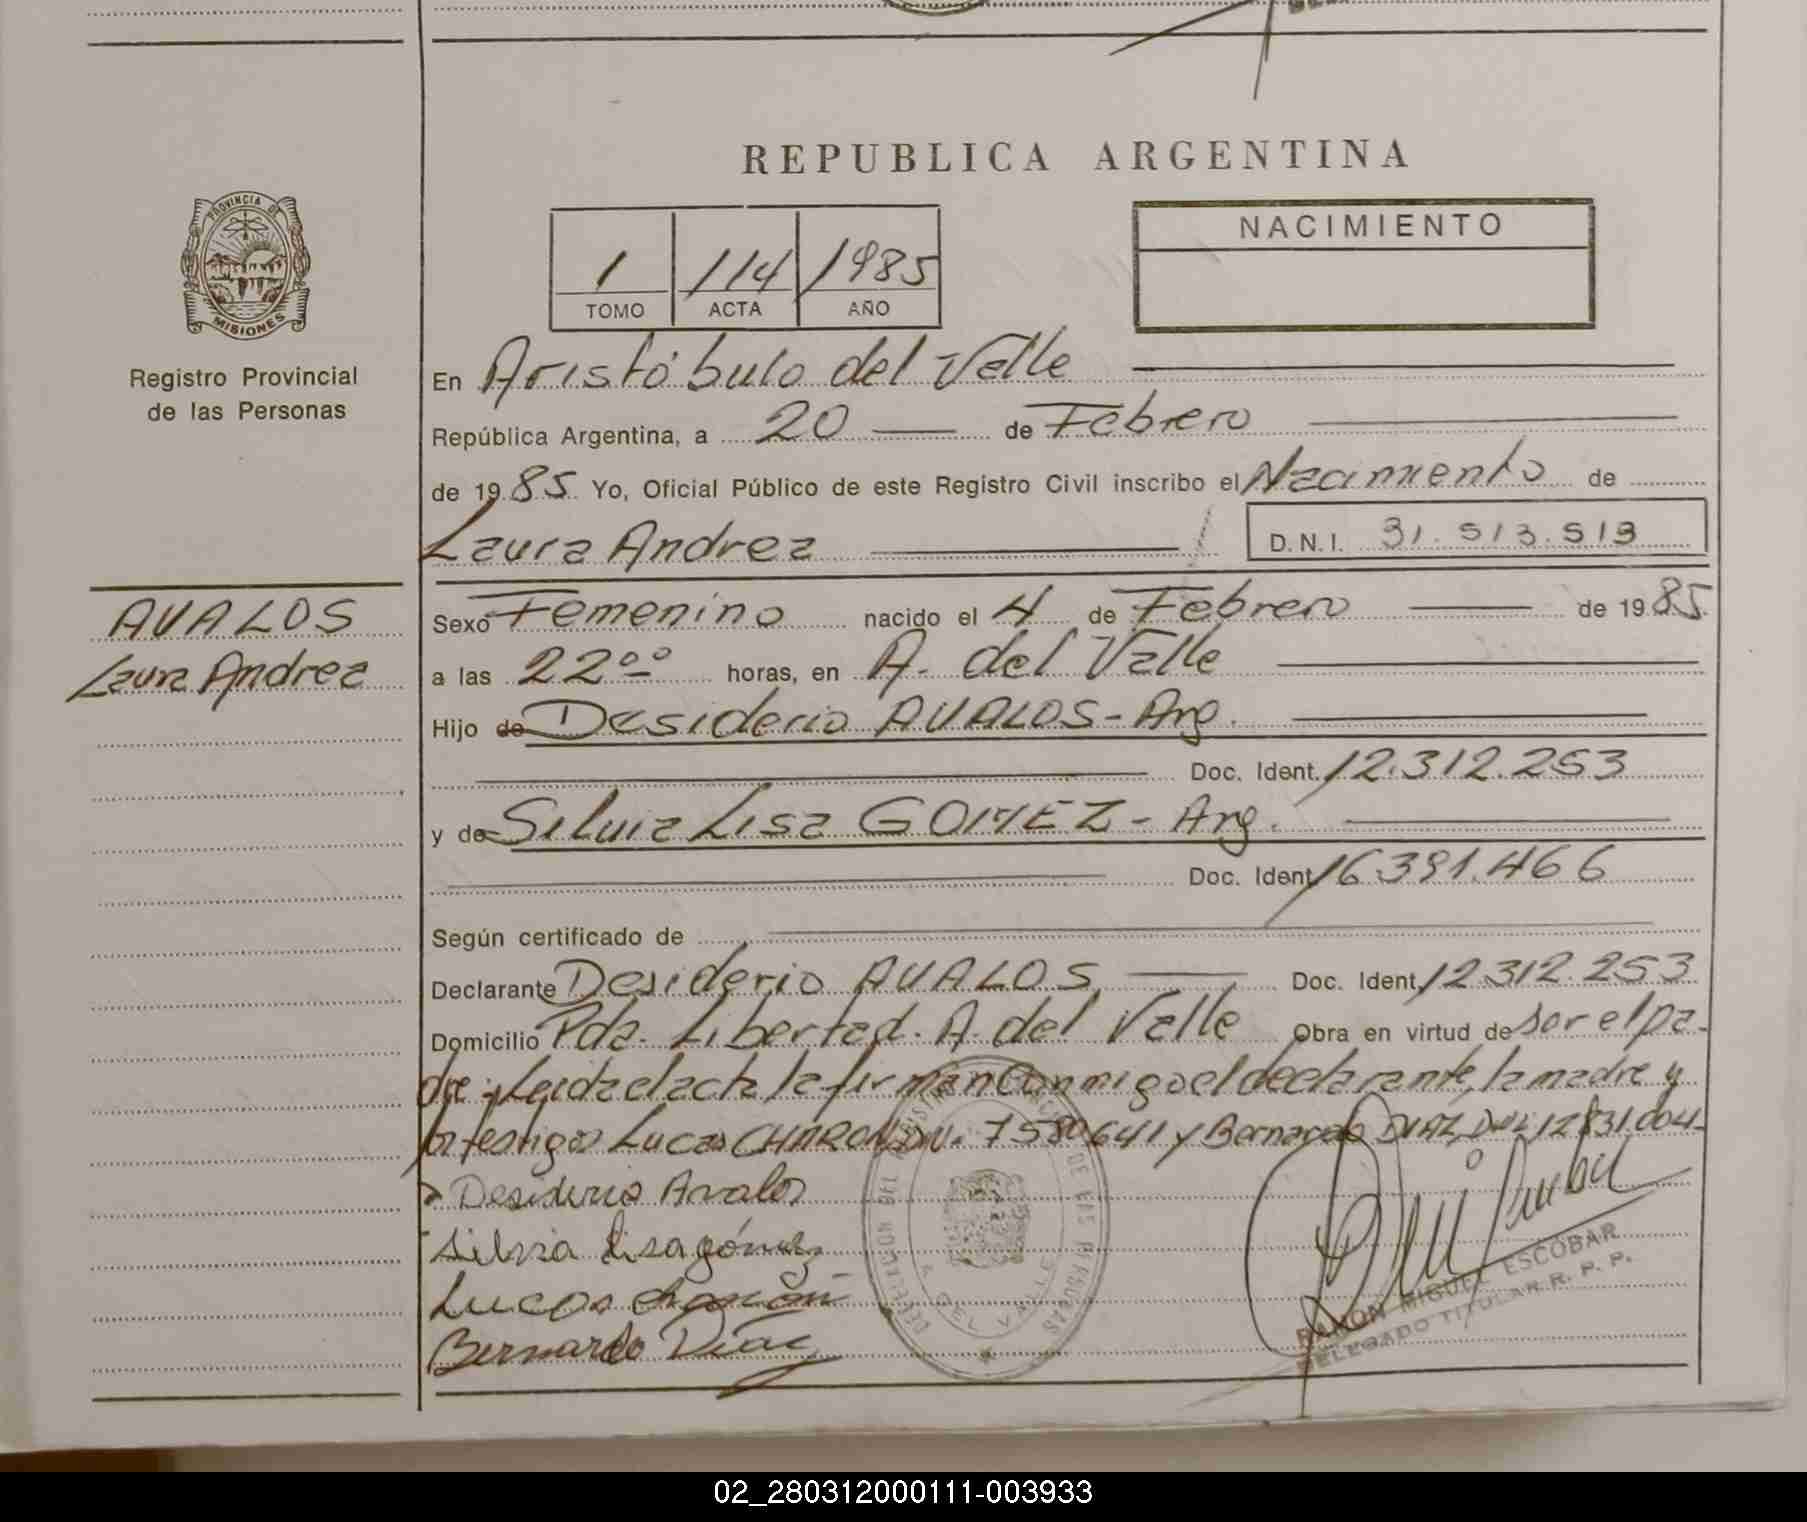 REPUBLICA ARGENTINA
PROVINCIA DE
MISIONES
Registro Provincial
de las Personas
1 114 1985
TOMO ACTA AÑO
NACIMIENTO
En Aristóbulo del Valle
República Argentina, a 20 de Febrero
de 1985 Yo, Oficial Público de este Registro Civil inscribo el Nacimiento de
Laura Andrea
D.N.I. 31.513.519
AVALOS
Laura Andrea
Sexo Femenino nacido el 4 de Febrero de 1985
a las 22°° horas, en A. del Valle
Hijo de Desiderio AVALOS - Arg.
Doc. Ident. 12.312.253
y de Silvia Lisa GOMEZ - Arg.
Doc. Ident. 16.391.466
Según certificado de
Declarante Desiderio AVALOS Doc. Ident. 12.312.253
Domicilio Pda. Libertad. A. del Valle Obra en virtud de ser el pa-
dre. Leida el acta la firman conmigo el declarante, la madre y
los testigos Lucas CHARON 7580641 y Bernardo DIAZ DNI 12831004-
Desiderio Avalos
Silvia Lisa gómez
Lucas
Bernardo Díaz
A. DEL VALLE
RAMON MIGUEL ESCOBAR
DELEGADO TITULAR R. P. P.
02_280312000111-003933